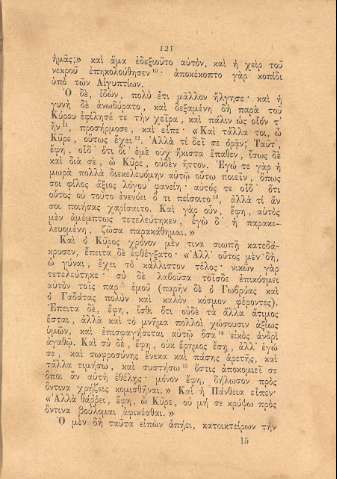 121
ἡμᾶς;» καὶ ἅμα ἐδεξιοῦτο αὐτόν, καὶ ἡ χεὶρ τοῦ
νεκροῦ ἐπηκολούθησεν· ἀπεκέκοπτο γὰρ κοπίδι
ὑπὸ τῶν Αἰγυπτίων.
Ὁ δέ, ἰδών, πολὺ ἔτι μᾶλλον ἤλγησε· καὶ ἡ
γυνὴ δὲ ἀνωδύρατο, καὶ δεξαμένη δὴ παρὰ τοῦ
Κύρου ἐφίλησέ τε τὴν χεῖρα, καὶ πάλιν ὡς οἷόν τ'
ἦν, προσήρμοσε, καὶ εἶπε· «Καὶ τἆλλά τοι, ὦ
Κῦρε, οὕτως ἔχει. Ἀλλὰ τί δεῖ σε ὁρᾶν; Ταῦτ',
ἔφη, οἶδ' ὅτι δι' ἐμὲ οὐχ ἥκιστα ἔπαθεν, ἴσως δὲ
καὶ διὰ σέ, ὦ Κῦρε, οὐδὲν ἧττον. Ἐγώ τε γὰρ ἡ
μωρὰ πολλὰ διεκελευόμην αὐτῷ οὕτω ποιεῖν, ὅπως
σοι φίλος ἄξιος λόγου φανείη· αὐτός τε οἶδ' ὅτι
οὗτος οὐ τοῦτο ἐνενόει ὅ τι πείσοιτο, ἀλλὰ τί ἄν
σοι ποιήσας χαρίσαιτο. Καὶ γὰρ οὖν, ἔφη, αὐτὸς
μὲν ἀμέμπτως τετελεύτηκεν, ἐγὼ δ' ἡ παρακε-
λευομένη, ζῶσα παρακάθημαι.»
Καὶ ὁ Κῦρος χρόνον μέν τινα σιωπῇ κατεδά-
κρυσεν, ἔπειτα δὲ ἐφθέγξατο· «Ἀλλ' οὗτος μὲν δή,
ὦ γύναι, ἔχει τὸ κάλλιστον τέλος· νικῶν γὰρ
τετελεύτηκε· σὺ δὲ λαβοῦσα τοῖσδε ἐπικόσμει
αὐτὸν τοῖς παρ' ἐμοῦ (παρῆν δὲ ὁ Γωβρύας καὶ
ὁ Γαδάτας πολὺν καὶ καλὸν κόσμον φέροντες).
Ἔπειτα δέ, ἔφη, ἴσθι ὅτι οὐδὲ τὰ ἄλλα ἄτιμος
ἔσται, ἀλλὰ καὶ τὸ μνῆμα πολλοὶ χώσουσιν ἀξίως
ὑμῶν, καὶ ἐπισφαγήσεται αὐτῷ ὅσα εἰκὸς ἀνδρὶ
ἀγαθῷ. Καὶ σὺ δέ, ἔφη, οὐκ ἔρημος ἔσῃ, ἀλλ' ἐγώ
σε, καὶ σωφροσύνης ἕνεκα καὶ πάσης ἀρετῆς, καὶ
τἆλλα τιμήσω, καὶ συστήσω ὅστις ἀποκομιεῖ σε
ὅποι ἂν αὐτὴ ἐθέλῃς· μόνον ἔφη, δήλωσον πρὸς
ὅντινα χρῄζεις κομισθῆναι.» Καὶ ἡ Πάνθεια εἶπεν·
«Ἀλλὰ θάρρει, ἔφη, ὦ Κῦρε, οὐ μή σε κρύψω πρὸς
ὅντινα βούλομαι ἀφικέσθαι.»
Ὁ μὲν δὴ ταῦτα εἰπὼν ἀπῄει, κατοικτείρων τὴν
15